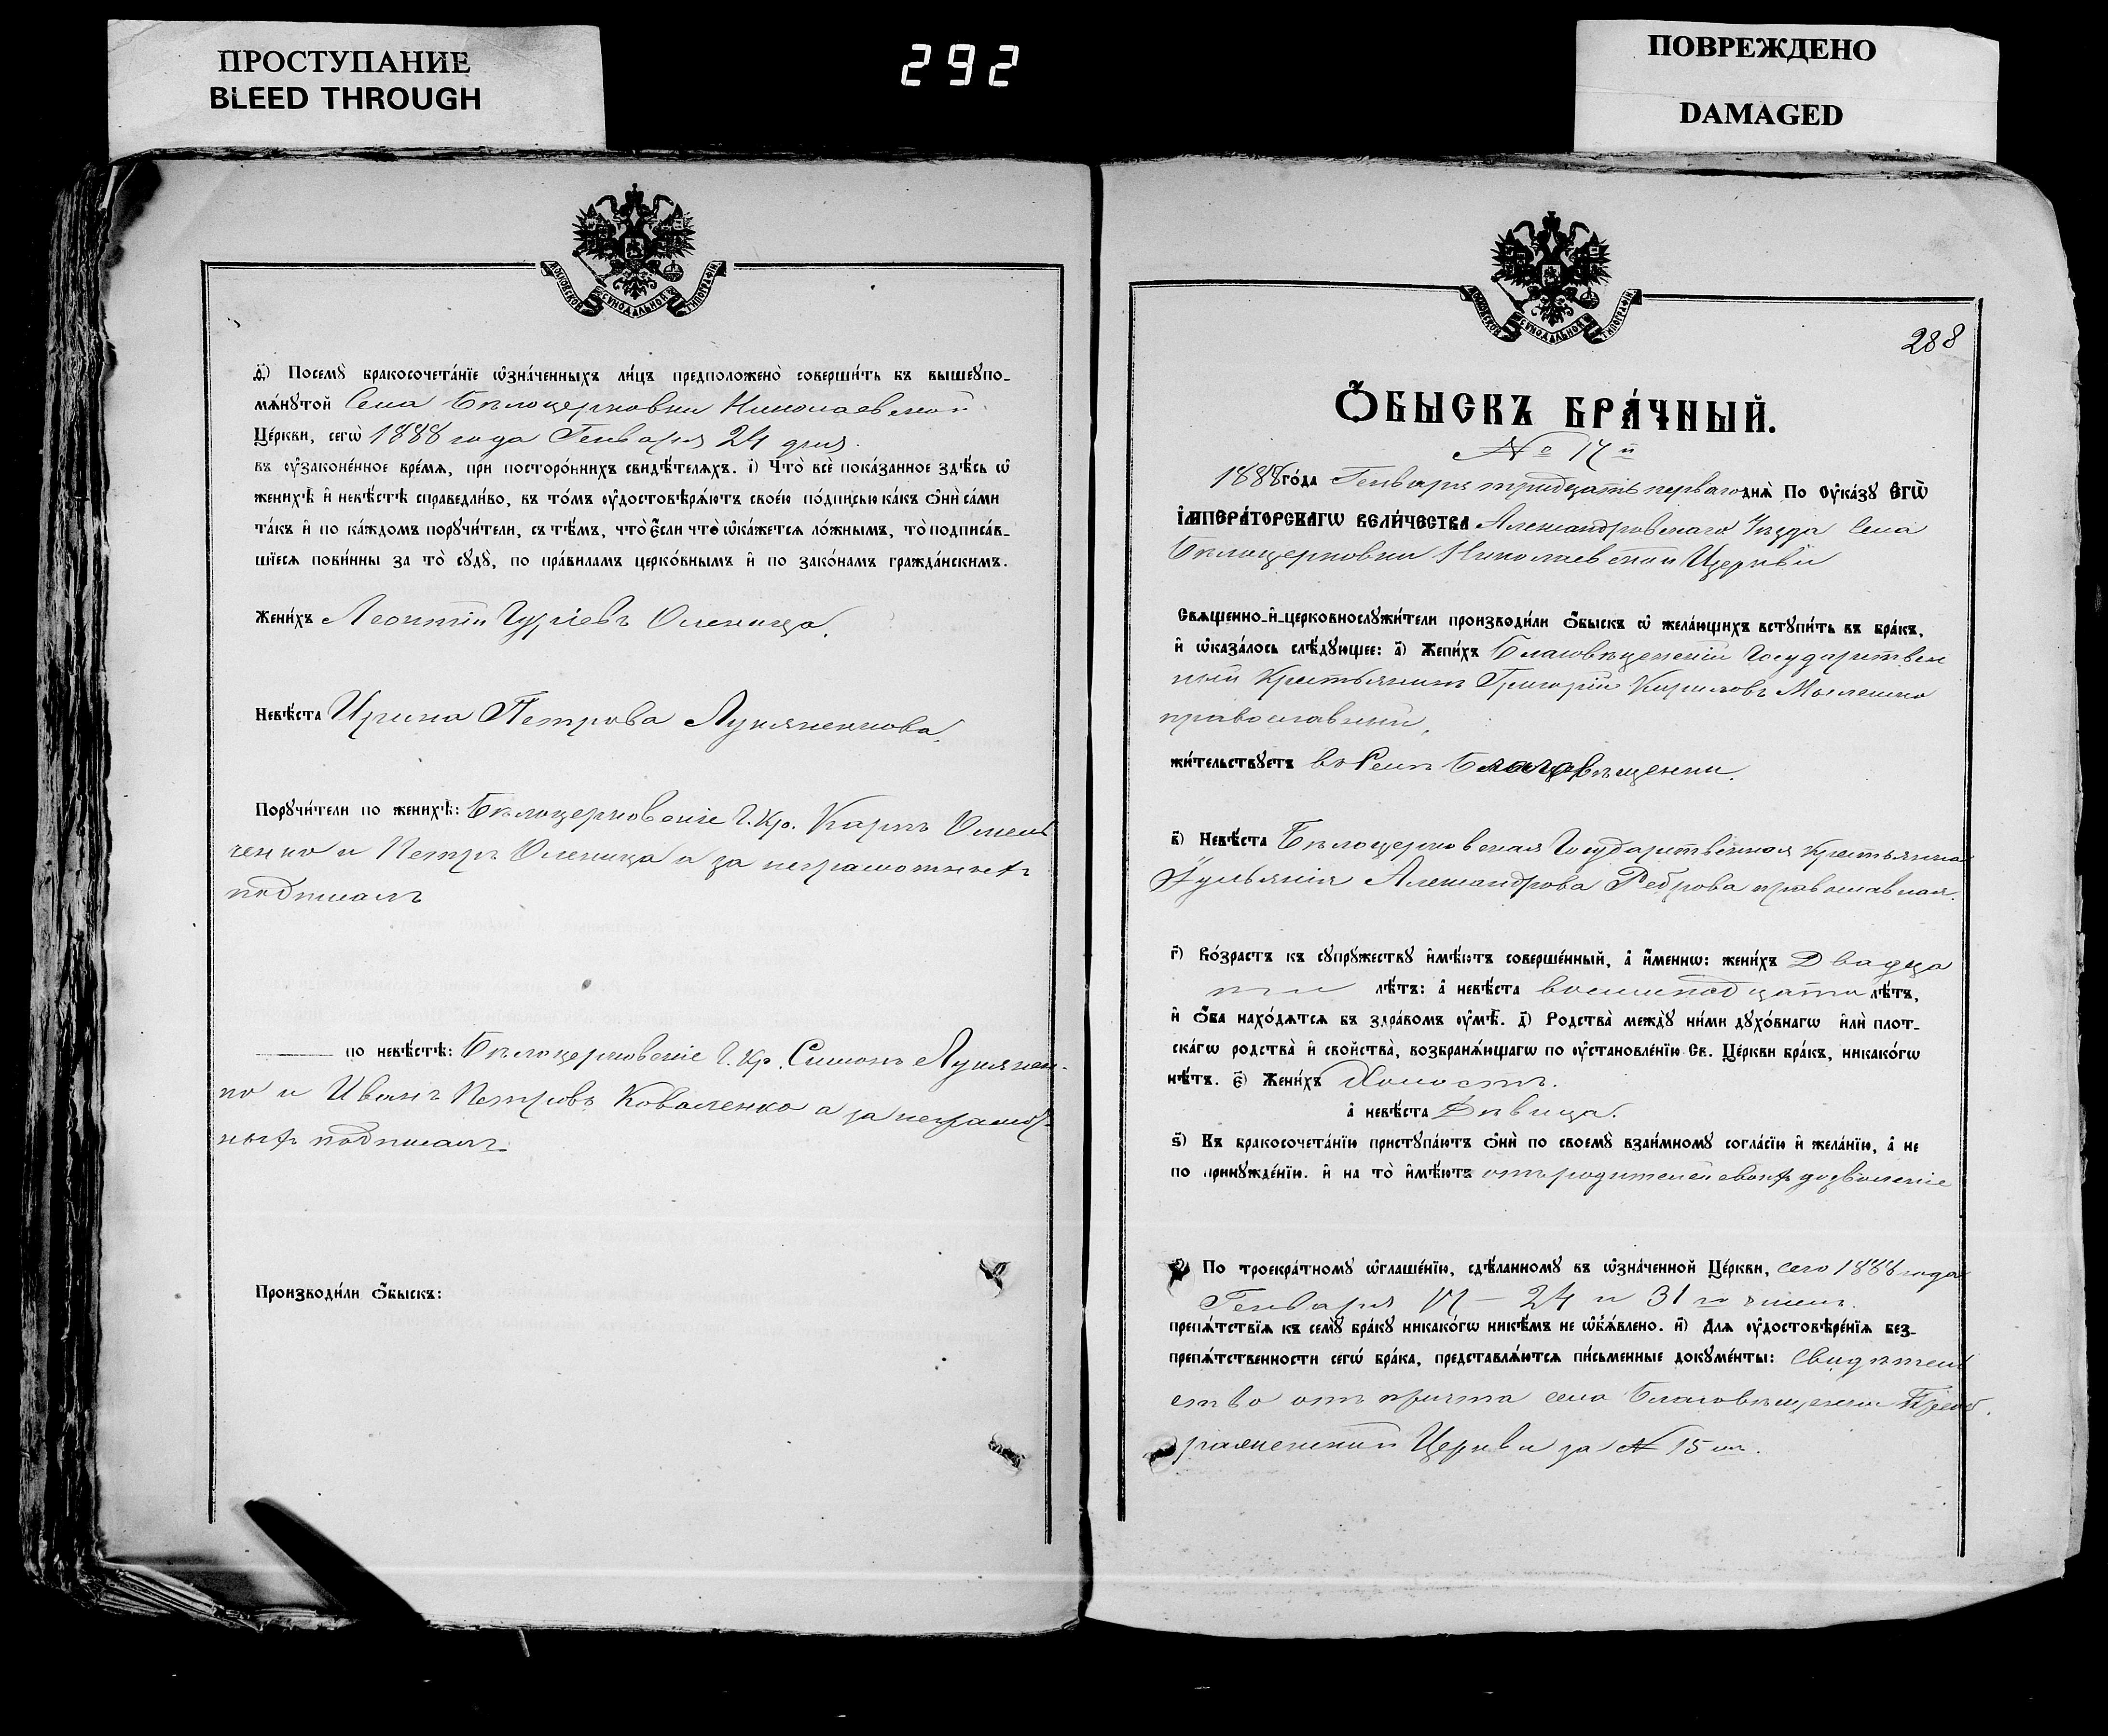 ПРОСТУПАНИЕ
BLEED THROUGH
292
ПОВРЕЖДЕНО
DAMAGED
МОСКОВСКОЙ СѴНОДАЛЬНОЙ ТИПОГРАФІИ
д҃) Посемꙋ бракосочета́нїе ѡ҆зна́ченныхъ ли́цъ предположено̀ соверши́ть въ вышеꙋпо-
мѧ́нꙋтой Села Бѣлоцерковки Николаевской
Це́ркви, сегѡ̀ 1888 года Генваря 24 дня.
въ ᲂу҆законе́нное вре́мѧ, при посторо́ннихъ свидѣ́телѧхъ. і҃) Что̀ всѐ пока́занное здѣ́сь ѡ҆
женихѣ̀ и҆ невѣ́стѣ справедли́во, въ то́мъ ᲂу҆достовѣрѧ́ютъ свое́ю по́дписью ка́къ ѻ҆нѝ са́ми
та́къ и҆ по ка́ждомъ порꙋчи́тели, съ тѣ́мъ, что̀ є҆́сли что̀ ѡ҆ка́жетсѧ ло́жнымъ, то̀ подписа́в-
шїесѧ пови́нны за то̀ сꙋдꙋ̀, по пра́виламъ церко́внымъ и҆ по зако́намъ гражда́нскимъ.
Жени́хъ Леонтій Гуріевъ Оленица.
Невѣ́ста Ирина Петрова Лукяненкова.
Порꙋчи́тели по женихѣ̀: Бѣлоцерковскіе Г. Кр. Карпъ Омель
ченко и Петръ Оленица а за неграмотныхъ
подписалъ
по невѣ́стѣ: Бѣлоцерковскіе Г. Кр. Симонъ Лукянен-
ко и Иванъ Петровъ Коваленко а за неграмот-
ныхъ подписалъ
Производи́ли ѻ҆́быскъ:
МОСКОВСКОЙ СѴНОДАЛЬНОЙ ТИПОГРАФІИ
288
Ѻ҆́БЫСКЪ БРА́ЧНЫЙ.
№ 17й
1888 го́да Генваря тридцать перваго днѧ̀ По ᲂу҆ка́зꙋ Є҆ГѠ̀
І҆МПЕРА́ТОРСКАГѠ ВЕЛИ́ЧЕСТВА Александровскаго Уѣзда Села
Бѣлоцерковки Николаевской Церкви
Свѧще́нно-и҆-церковнослꙋжи́тели производи́ли ѻ҆́быскъ ѡ҆ жела́ющихъ встꙋпи́ть въ бра́къ,
и҆ ѡ҆каза́лось слѣ́дꙋющее: а҃) Жени́хъ Благовѣщенскій Государствен
ный Крестьянинъ Григорій Кириловъ
православный,
жи́тельствꙋетъ въ Селѣ Благовѣщенки.
в҃) Невѣ́ста Бѣлоцерковская Государственная Крестьянка
Іульянія Александрова Реброва православная.
г҃) Во́зрастъ къ сꙋпрꙋ́жествꙋ и҆мѣ́ютъ соверше́нный, а҆ и҆́меннѡ: жени́хъ Двадца
ти лѣ́тъ: а҆ невѣ́ста восемнадцати лѣ́тъ,
и҆ ѻ҆́ба нахо́дѧтсѧ въ здра́вомъ ᲂу҆мѣ̀. д҃) Родства̀ междꙋ̀ ни́ми дꙋхо́внагѡ и҆лѝ плот-
ска́гѡ родства̀ и҆ сво́йства̀, возбранѧ́ющагѡ по ᲂу҆становле́нїю Св. Це́ркви бра́къ, никако́гѡ
нѣ́тъ. є҃) Жени́хъ Холостъ.
а҆ невѣ́ста Дѣвица.
ѕ҃) Къ бракосочета́нїю пристꙋпа́ютъ ѻ҆нѝ по своемꙋ̀ взаи́мномꙋ согла́сїю и҆ жела́нїю, а҆ не
по принꙋжде́нїю. и҆ на то̀ и҆мѣ́ютъ отъ родителей своихъ дозволеніе
з҃) По троекра́тномꙋ ѡ҆глаше́нїю, сдѣ́ланномꙋ въ ѡ҆зна́ченной Це́ркви, сего 1888 года
Генваря 17 – 24 и 31 го чиселъ.
препѧ́тствїѧ къ семꙋ̀ бра́кꙋ никако́гѡ никѣ́мъ не ѡ҆б̾ѧ́влено. и҃) Длѧ ᲂу҆достовѣре́нїѧ без-
препѧ́тственности сегѡ̀ бра́ка, представлѧ́ютсѧ пи́сьменные докꙋме́нты: Свидѣтель
ство отъ причта села Благовѣщенки Преоб.
раженской Церкви за № 15 мъ.